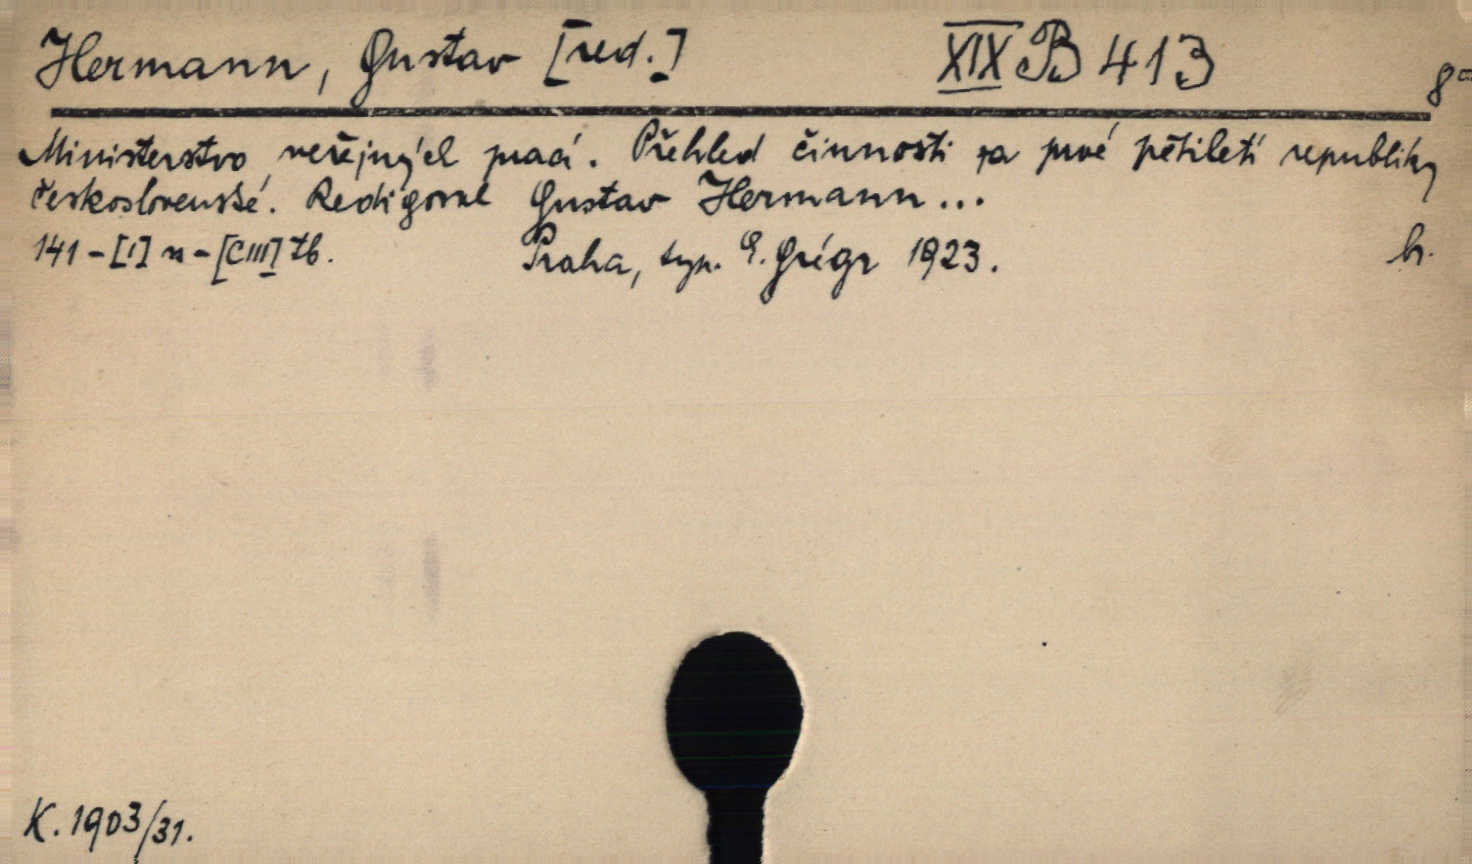 Hermann, Gustav [red.] XIX B 413 8°
Ministerstvo veřejných prací. Přehled činnosti za prvé pětiletí republiky
Československé. Redigoval Gustav Hermann...
141-[I] s-[CIII] tb. Praha, typ. E. Grégr 1923. h.
K. 1903/31.